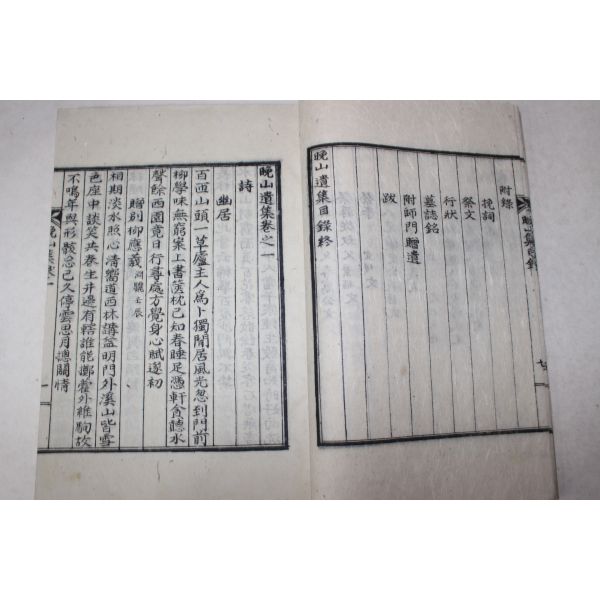 附錄
挽詞
祭文
行狀
墓誌銘
附師門贈遺
跋
晩山遺集目錄終
晩山遺集卷之一
詩
幽居
百面山頭一草廬主人爲卜獨閒居風光忽到門前
柳學味無窮案上書醫枕已知春睡足憑軒貪聽水
聲餘西園竟日行尋處方覺身心賦遂初
贈別柳應義 壬辰
相期淡水照心淸嚮道西林講益明門外溪山皆雪
色座中談笑共春生井邊有轄誰能擲藿外維駒故
不鳴年與形骸忽已久停雲思月總關情
晩山集卷一